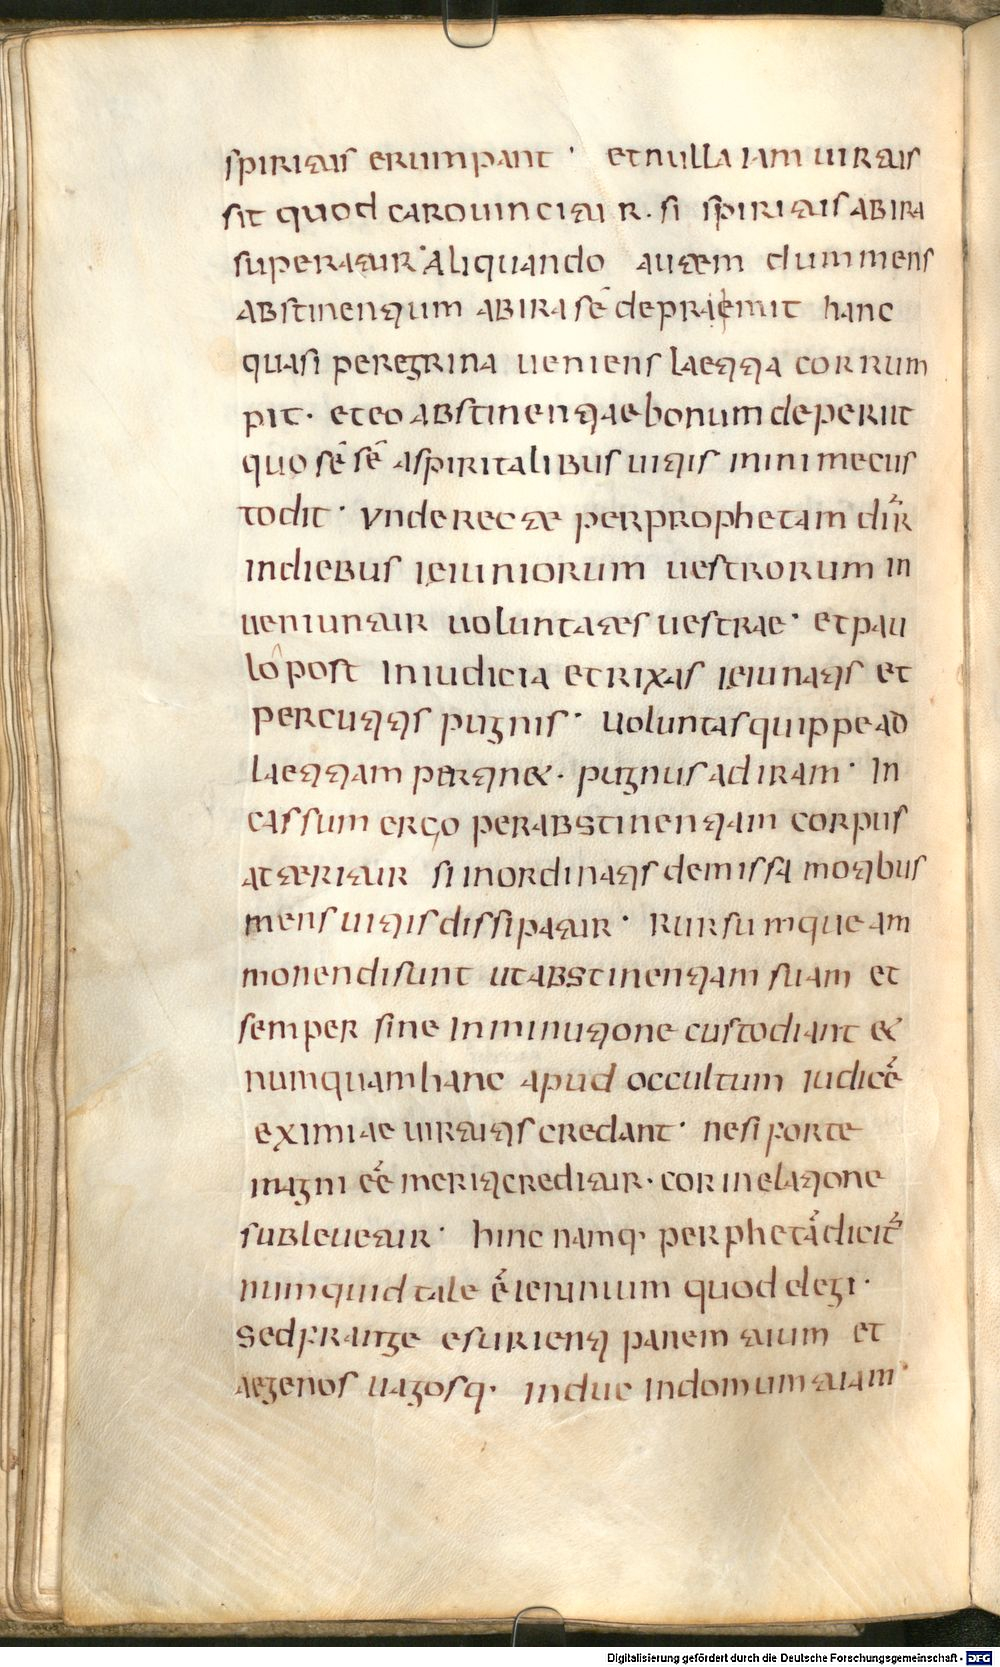 spiritus erumpant · et nulla iam uirtus
sit quod caro uincitur · si spiritus ab ira
superatur · Aliquando autem dum mens
abstinentium ab ira sē depraemit hanc
quasi peregrina ueniens laetitia corrum
pit · et eo abstinentiae bonum deperiit
quo sē sē a spiritalibus uitiis minime cus
todit · Vnde recte per prophetam dīr
in diebus ieiuniorum uestrorum in
ueniuntur uoluntates uestrae · et pau
lo post in iudicia et rixas ieiunatis et
percutitis pugnis · uoluntas quippe ad
laetitiam pertinet · pugnus ad iram · In
cassum ergo per abstinentiam corpus
atteritur si inordinatis demissa motibus
mens uitiis dissipatur · Rursumque am
monendi sunt ut abstinentiam suam et
semper sine inminutione custodiant &
numquam hanc apud occultum iudicē
eximiae uirtutis credant · ne si forte
magni eē meriti creditur · cor in elatione
subleuetur · hinc namq· per phetā dicit̄
numquid tale ē ieiunium quod elegi ·
Sed frange esurienti panem tuum et
aegenos uagosq· induc in domum tuam ·
Digitalisierung gefördert durch die Deutsche Forschungsgemeinschaft - DFG